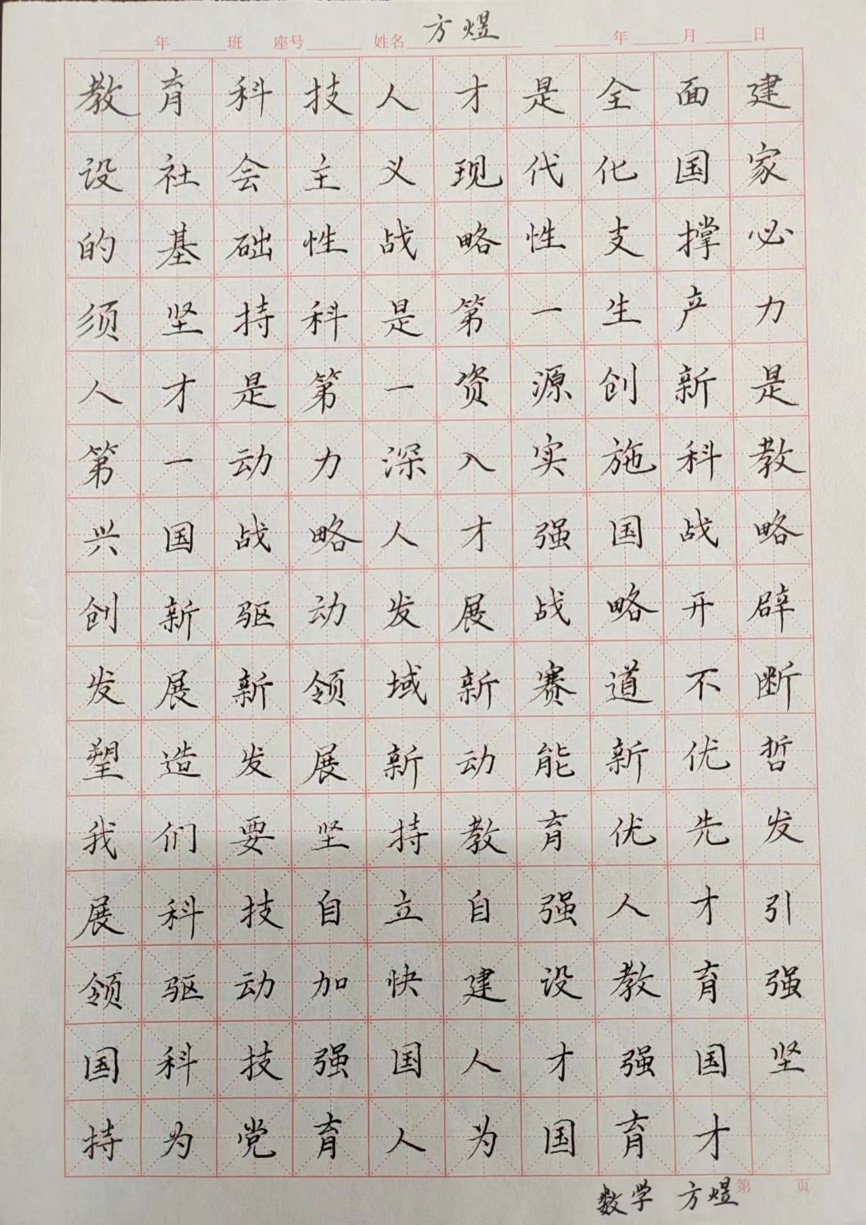 方煜
年 班 座号 姓名 年 月 日
教育科技人才是全面建
设社会主义现代化国家
的基础性战略性支撑必
须坚持科是第一生产力
人才是第一资源创新是
第一动力深入实施科教
兴国战略人才强国战略
创新驱动发展战略开辟
发展新领域新赛道不断
塑造发展新动能新优哲
我们要坚持教育优先发
展科技自立自强人才引
领驱动加快建设教育强
国科技强国人才强国坚
持为党育人为国育才
数学 方煜
第 页